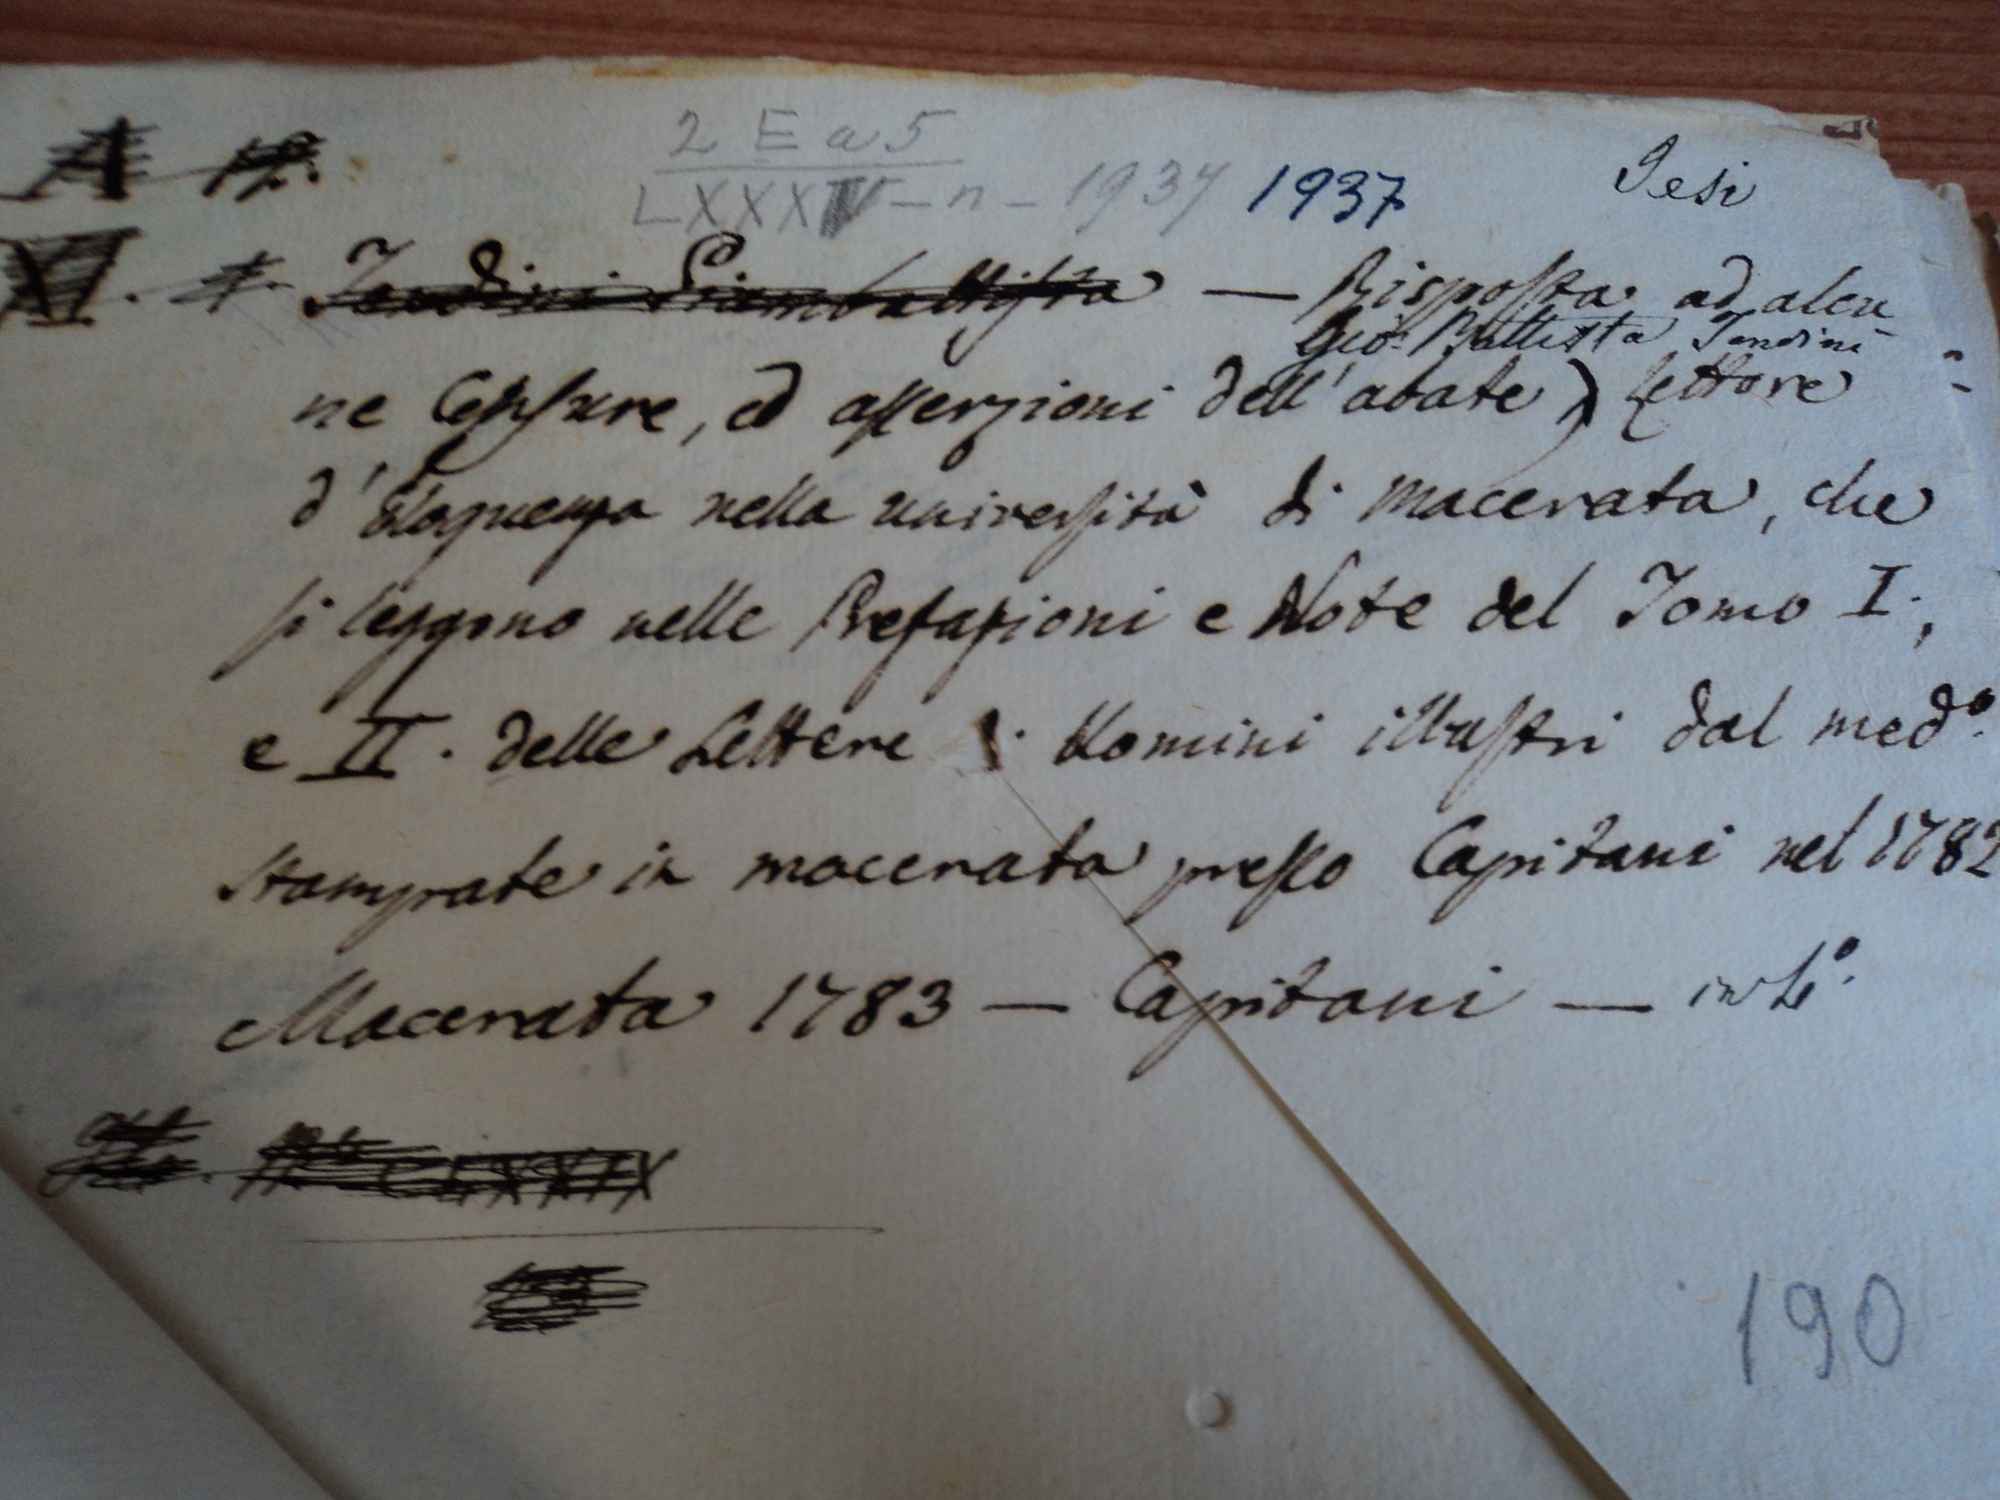 2 E a 5
LXXXIV - n - 1937 1937
Jesi
XI. Tondini Giambattista — Risposta ad alcu
Gio: Battista Tondini
ne Censure, ed asserzioni dell'abate) Lettore
d'Eloquenza nella università di Macerata, che
si leggono nelle Prefazioni e Note del Tomo I.,
e II. delle Lettere di Uomini illustri dal medº.
Stamprate in macerata presso Capitani nel 1782
Macerata 1783 — Capitani — in
CLXXIX
190